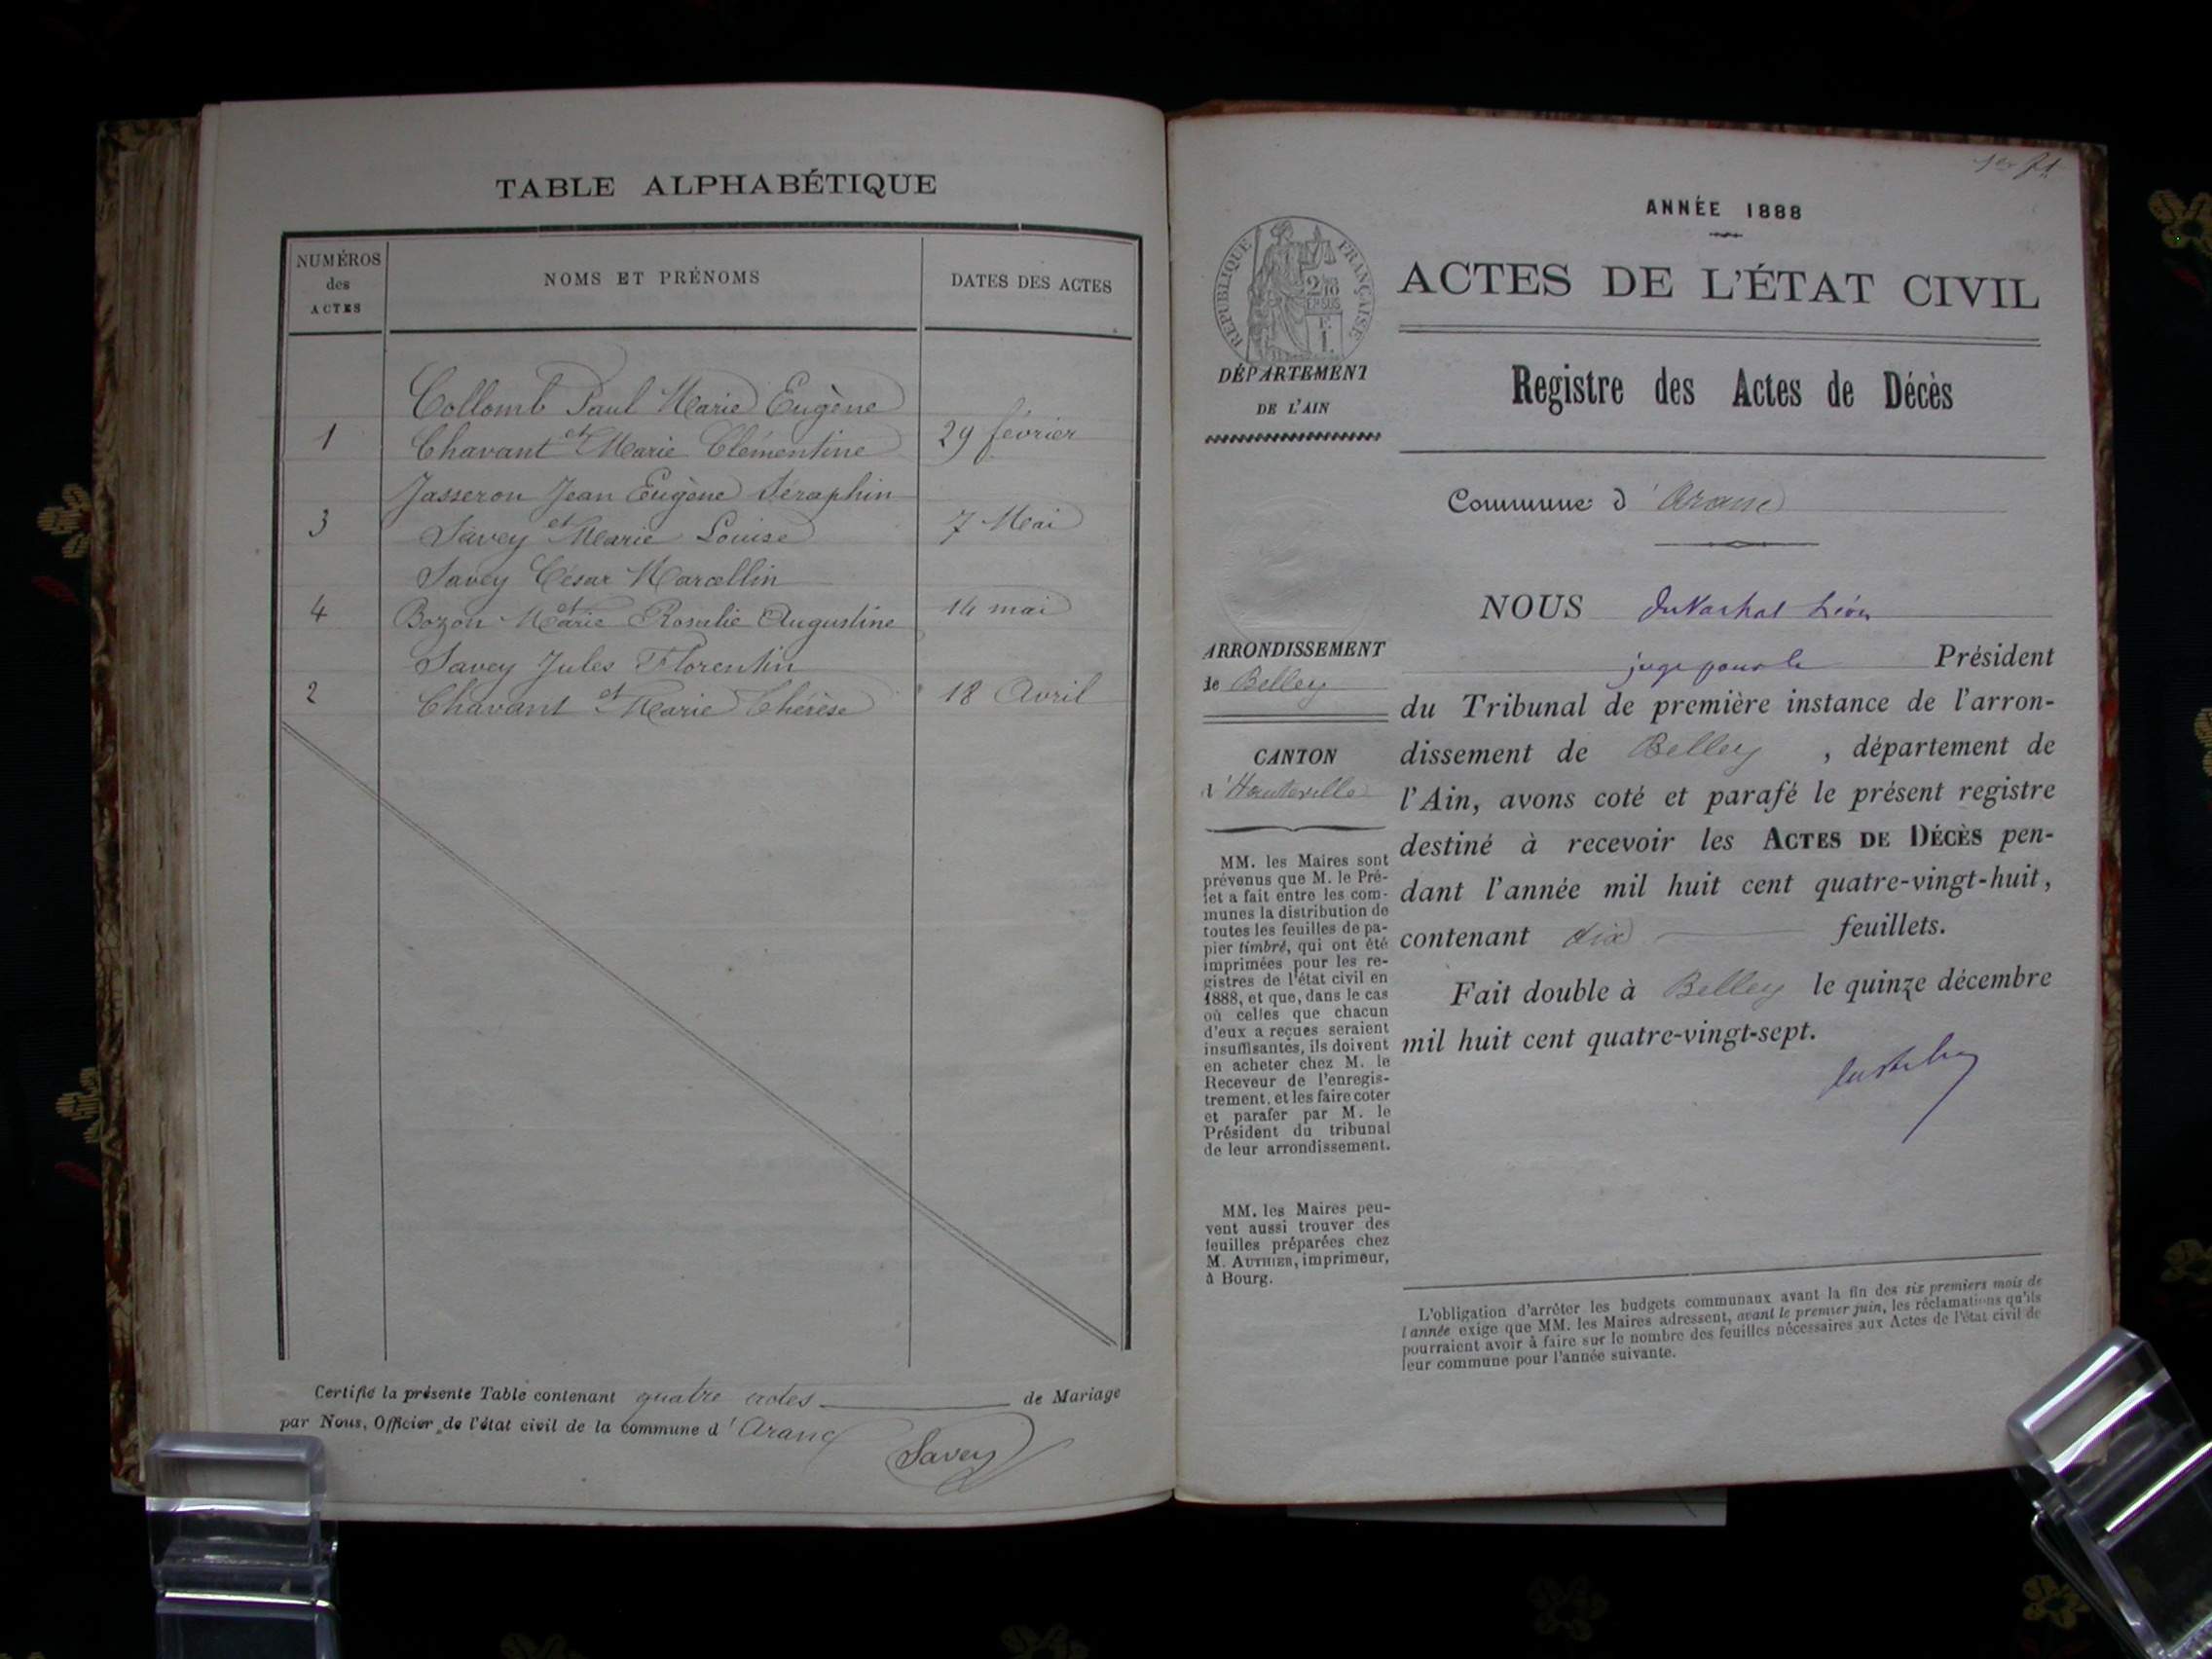 TABLE ALPHABÉTIQUE
NUMÉROS des ACTES
NOMS ET PRÉNOMS
DATES DES ACTES
Collomb Paul Marie Eugène
et
1 Chavant Marie Clémentine 29 février
Jasseron Jean Eugène Séraphin
et
3 Savey Marie Louise 7 Mai
Savey César Marcellin
et
4 Bozon Marie Rosalie Augustine 14 mai
Savey Jules Florentin
et
2 Chavant Marie Thérèse 18 Avril
Certifié la présente Table contenant quatre actes de Mariage
par Nous, Officier de l'état civil de la commune d'Aranc
Savey
ANNÉE 1888
RÉPUBLIQUE FRANÇAISE
2/10
EN SUS
F.
1.
ACTES DE L'ÉTAT CIVIL
DÉPARTEMENT
DE L'AIN
Registre des Actes de Décès
Commune d'Aranc
NOUS Léon
juge pour le Président
ARRONDISSEMENT
de Belley
du Tribunal de première instance de l'arron-
dissement de Belley, département de
l'Ain, avons coté et parafé le présent registre
destiné à recevoir les ACTES DE DÉCÈS pen-
dant l'année mil huit cent quatre-vingt-huit,
contenant dix feuillets.
Fait double à Belley le quinze décembre
mil huit cent quatre-vingt-sept.
CANTON
d'Hauteville
MM. les Maires sont
prévenus que M. le Pré-
fet a fait entre les com-
munes la distribution de
toutes les feuilles de pa-
pier timbré, qui ont été
imprimées pour les re-
gistres de l'état civil en
1888, et que, dans le cas
où celles que chacun
d'eux a reçues seraient
insuffisantes, ils doivent
en acheter chez M. le
Receveur de l'enregis-
trement, et les faire coter
et parafer par M. le
Président du tribunal
de leur arrondissement.
MM. les Maires peu-
vent aussi trouver des
feuilles préparées chez
M. AUTHIER, imprimeur,
à Bourg.
L'obligation d'arrêter les budgets communaux avant la fin des six premiers mois de
l'année exige que MM. les Maires adressent, avant le premier juin, les réclamations qu'ils
pourraient avoir à faire sur le nombre des feuilles nécessaires aux Actes de l'état civil de
leur commune pour l'année suivante.